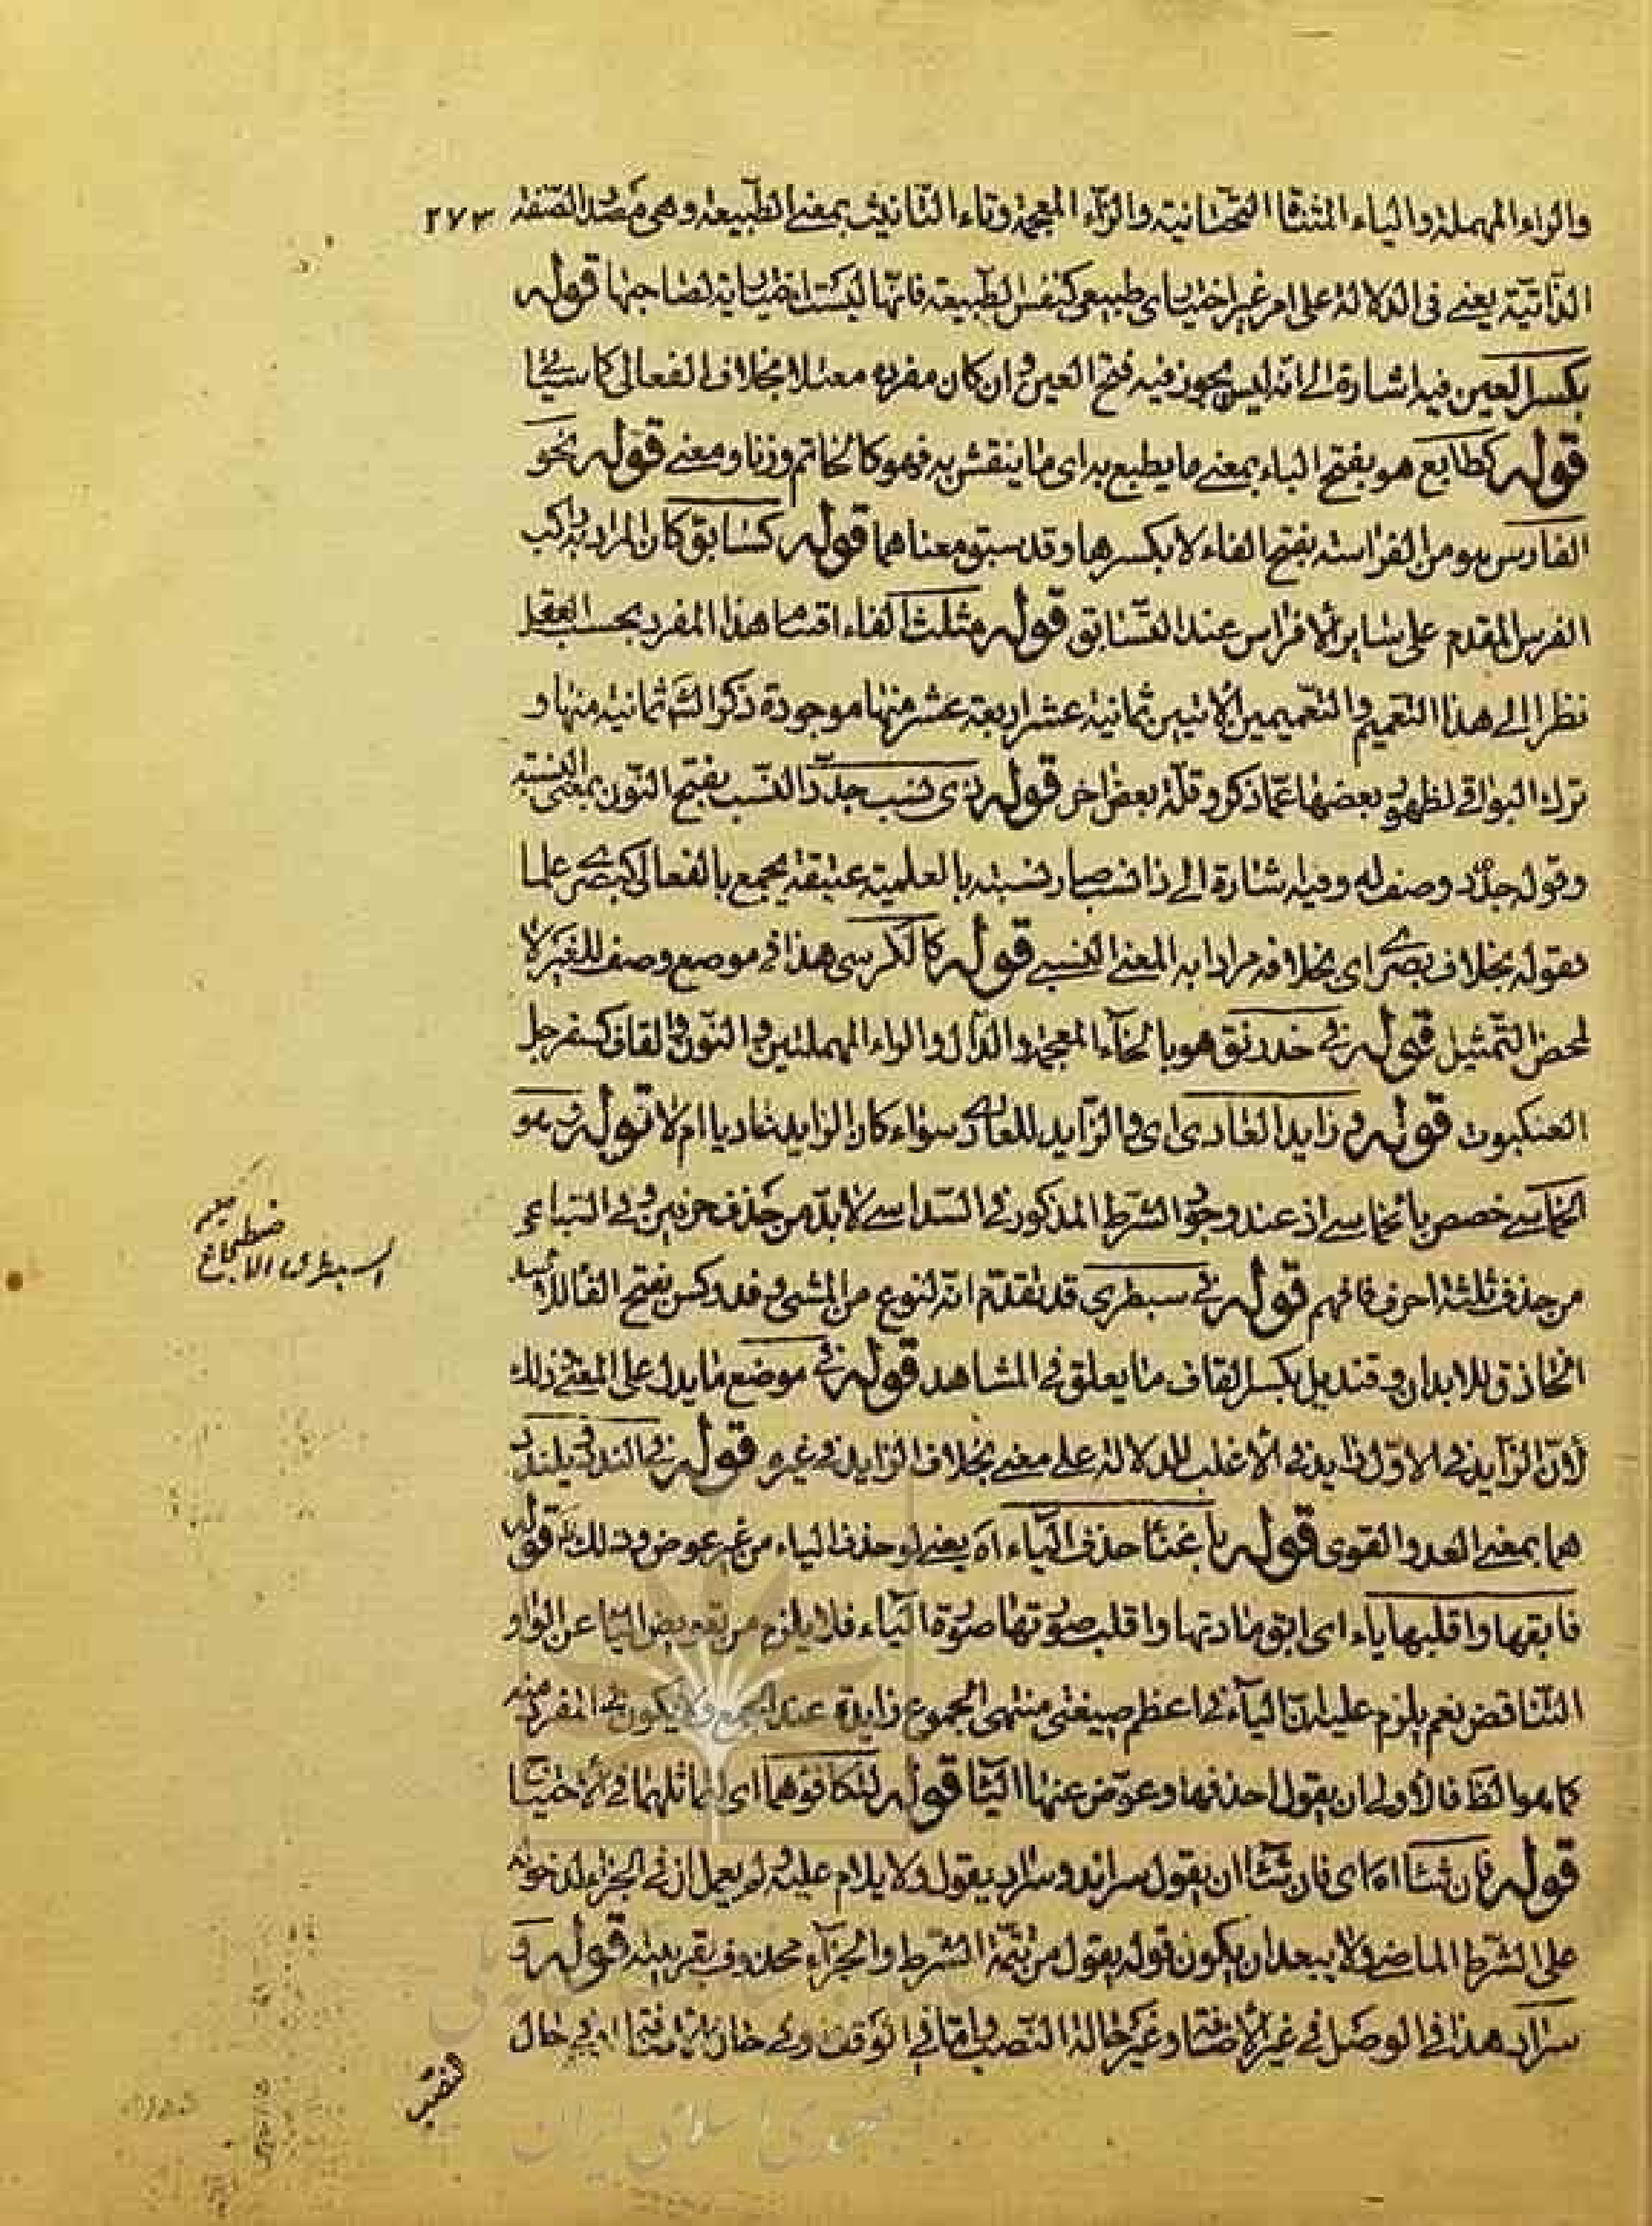 والراء المهملة والياء المثناة التحتانية والزاء المعجمة وتاء التانيث بمعنى الطبيعة وهي مصدر الصفة ٢٧٣
الذاتية يعنى فى الدلالة على امر غير اختيارى طبيعى كنفس الطبيعة فانها ليست اختيارية لصاحبها قوله
بكسر العين فيه اشارة الى انه ليس يجوز فيه فتح العين وان كان مفرده معتلا بخلاف الفعالى كما سيئ
قوله كطابع هو بفتح الباء بمعنى ما يطبع به اى ما ينقش به فهو كالخاتم وزنا ومعنى قوله نحو
الفارس هو من الفراسة بفتح الفاء لا بكسرها وقد سبق معناهما قوله كسابق كان المراد به راكب
الفرس المقدم على ساير الافراس عند التسابق قوله مثلث الفاء اقسام هذا المفرد بحسب العقل
نظرا الى هذا التعميم والتعميمين الاتيين ثمانية عشر اربعة عشر منها موجودة ذكر الشم ثمانية منها و
ترك البواقى لظهور بعضها عما ذكر وقلة بعض اخر قوله ذى نسب جدد النسب بفتح النون بمعنى النسبة
وقوله جدد وصف له وفيه اشارة الى ان ما صار نسبته بالعلمية عتيقة يجمع بالفعالى كبصرى علما
بقوله بخلاف بصرى اى بخلافه مرادا به المعنى النسبى قوله كالكرسى هذا فى موضع وصف للغير لا
لمحض التمثيل قوله فى خدرنق هو بالخاء المعجمة والدال والراء المهملتين والنون والقاف كسفرجل
العنكبوت قوله وزايد العادى اى والزايد للعادى سواء كان الزايد عاديا ام لا قوله فى هو
الخماسى خصص بالخماسى اذ عند وجود الشرط المذكور فى السداسى لا بد من حذف حرفين وفى السباعى
من حذف ثلثة احرف فافهم قوله فى سبطرى قد تقدم انه لنوع من المشى وفدوكس بفتح الفاء
الحاذق للابدان وقنديل بكسر القاف ما يعلق فى المشاهد قوله فى موضع ما يدل على المعنى ذلك
لان الزايد فى الاول زايد فى الاغلب للدلالة على معنى بخلاف الزايد فى غيره قوله فى الندد ويلندد
هما بمعنى العدو القوى قوله باغنا حذف الياء اه يعنى لو حذف الياء من غير عوض وذلك قوله
فابقها واقلبها ياء اى ابق مادتها واقلب صورتها صورة الياء فلا يلزم من تعويض الياء عن الواو
التناقض نعم يلزم عليه ان الياء فى اعظم صيغتى منتهى الجموع زايدة عند الجمع ولا يكون فى المفرد منه
كما هو الظ فالاولى ان يقول احذفها وعوض عنها الياء قوله لتكافؤهما اى لتماثلهما فى الاختيار
قوله فان شاء اه اى فان شاء ان يقول سراند وسراد يقول ولا يلام عليه لم يعمل ان فى الجزاء لدخوله
على الشرط الماضى ولا يبعد ان يكون قوله يقول من تتمة الشرط والجزاء محذوف بقرينة قوله و
سراد هذا فى الوصل فى غير الاضافة وغير حالة النصب واما فى الوقف وفى حال الاضافة او فى حال
النصب